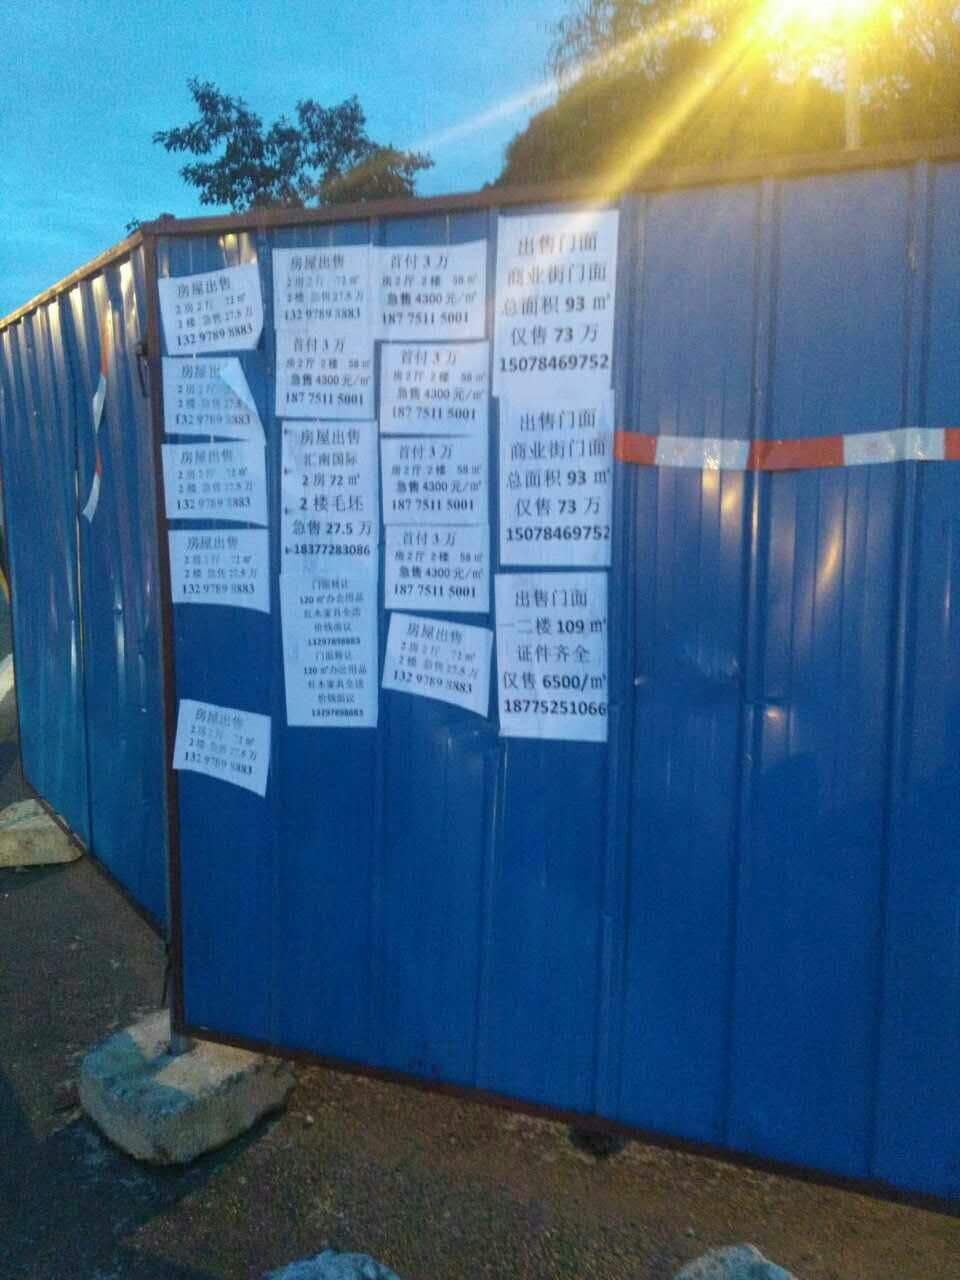 房屋出售
2房2厅 72㎡
2楼 急售27.5万
132 9789 8883
房屋出
2房2厅
2楼 急售27.5
132 9789 8883
房屋出售
2房2厅 72㎡
2楼 急售27.5万
132 9789 8883
房屋出售
2房2厅 72㎡
2楼 急售27.5万
132 9789 8883
房屋出售
2房2厅 72㎡
2楼 急售27.5万
132 9789 8883
房屋出售
2房2厅 72㎡
2楼 急售27.5万
132 9789 8883
首付3万
房2厅 2楼 58㎡
急售4300元/㎡
187 7511 5001
房屋出售
汇南国际
2房72㎡
2楼毛坯
急售27.5万
18377283086
门面转让
120㎡办公用品
红木家具全送
价钱面议
13297898883
门面转让
120㎡办公用品
红木家具全送
价钱面议
13297898883
首付3万
房2厅 2楼 58㎡
急售4300元/㎡
187 7511 5001
首付3万
房2厅 2楼 58㎡
急售4300元/㎡
187 7511 5001
首付3万
房2厅 2楼 58㎡
急售4300元/㎡
187 7511 5001
首付3万
房2厅 2楼 58㎡
急售4300元/㎡
187 7511 5001
房屋出售
2房2厅 72㎡
2楼 急售27.5万
132 9789 8883
出售门面
商业街门面
总面积93㎡
仅售73万
15078469752
出售门面
商业街门面
总面积93㎡
仅售73万
15078469752
出售门面
一二楼109㎡
证件齐全
仅售6500/㎡
18775251066